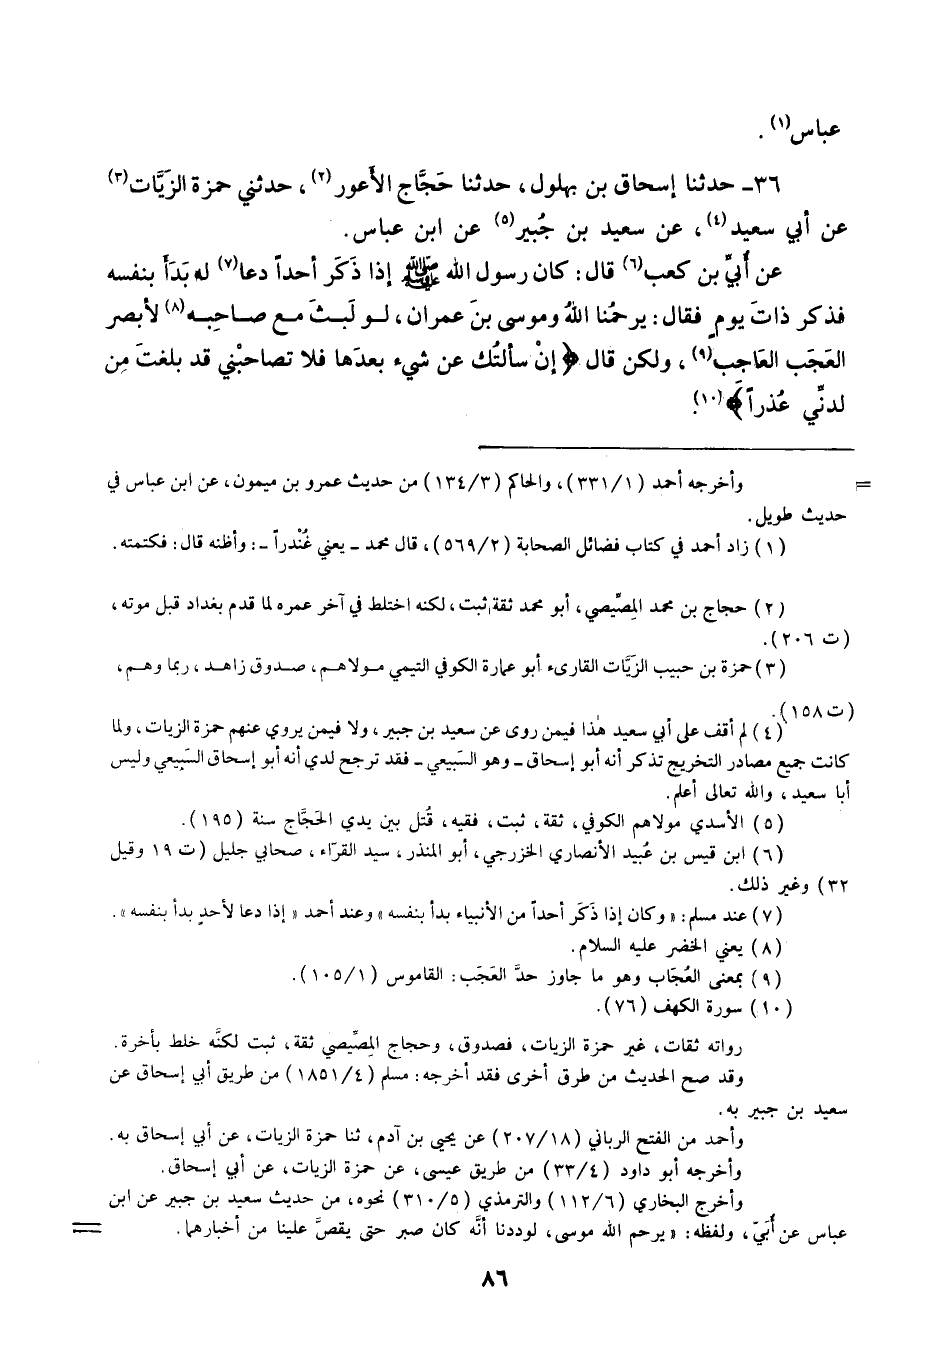 عباس(١) .
٣٦ـ حدثنا إسحاق بن بهلول، حدثنا حَجَّاج الأعور(٢)، حدثني حمزة الزَيَّات(٣)
عن أبي سعيد(٤)، عن سعيد بن جُبير(٥) عن ابن عباس.
عن أُبيِّ بن كعب(٦) قال: كان رسول الله ﷺ إذا ذَكَر أحداً دعا(٧) له بَدَأَ بنفسه
فذكر ذاتَ يومٍ فقال: يرحمُنا اللهُ وموسى بنَ عمران، لـو لَبـثَ مـع صـاحبِـه(٨) لأبصر
العَجَب العَاجب(٩)، ولكن قال ﴿ إنْ سألتُك عن شيء بعدَها فلا تصاحبْني قد بلغتَ مِن
لدنِّي عُذراً﴾(١٠).
= وأخرجه أحمد (٣٣١/١)، والحاكم (١٣٤/٣) من حديث عمرو بن ميمون، عن ابن عباس في
حديث طويل.
(١) زاد أحمد في كتاب فضائل الصحابة (٥٦٩/٢)، قال محمد ـ يعني غُنْدراً ـ: وأظنه قال: فكتمته.
(٢) حجاج بن محمد المِصِّيصي، أبو محمد ثقة, ثبت، لكنه اختلط في آخر عمره لما قدم بغداد قبل موته،
(ت ٢٠٦).
(٣) حمزة بن حبيب الزيَّات القارىء أبو عمارة الكوفي التيمي مـولاهـم، صـدوق زاهـد، ربما وهـم،
(ت ١٥٨).
(٤) لم أقف على أبي سعيد هٰذا فيمن روى عن سعيد بن جبير، ولا فيمن يروي عنهم حمزة الزيات، ولما
كانت جميع مصادر التخريج تذكر أنه أبو إسحاق ـ وهو السَّبيعي ـ فقد ترجح لدي أنه أبو إسحاق السَّبيعي وليس
أبا سعيد، والله تعالى أعلم.
(٥) الأسدي مولاهم الكوفي، ثقة، ثبت، فقيه، قُتل بين يدي الحَجَّاج سنة (١٩٥).
(٦) ابن قيس بن عُبيد الأنصاري الخزرجي، أبو المنذر، سيد القرّاء، صحابي جليل (ت ١٩ وقيل
٣٢) وغير ذلك.
(٧) عند مسلم: «وكان إذا ذَكَر أحداً من الأنبياء بدأ بنفسه» وعند أحمد «إذا دعا لأحدٍ بدأ بنفسه».
(٨) يعني الخضر عليه السلام.
(٩) بمعنى العُجَاب وهو ما جاوز حدَّ العَجَب: القاموس (١٠٥/١).
(١٠) سورة الكهف (٧٦).
رواته ثقات، غير حمزة الزيات، فصدوق، وحجاج المِصِّيصي ثقة، ثبت لكنَّه خلط بأخرة.
وقد صح الحديث من طرق أخرى فقد أخرجه: مسلم (١٨٥١/٤) من طريق أبي إسحاق عن
سعيد بن جبير به.
وأحمد من الفتح الرباني (٢٠٧/١٨) عن يحيى بن آدم، ثنا حمزة الزيات، عن أبي إسحاق به.
وأخرجه أبو داود (٣٣/٤) من طريق عيسى، عن حمزة الزيات، عن أبي إسحاق.
وأخرج البخاري (١١٢/٦) والترمذي (٣١٠/٥) نحوه، من حديث سعيد بن جبير عن ابن
عباس عن أُبَيّ، ولفظه: «يرحم الله موسى، لوددنا أنَّه كان صبر حتى يقصَّ علينا من أخبارهما. =
٨٦